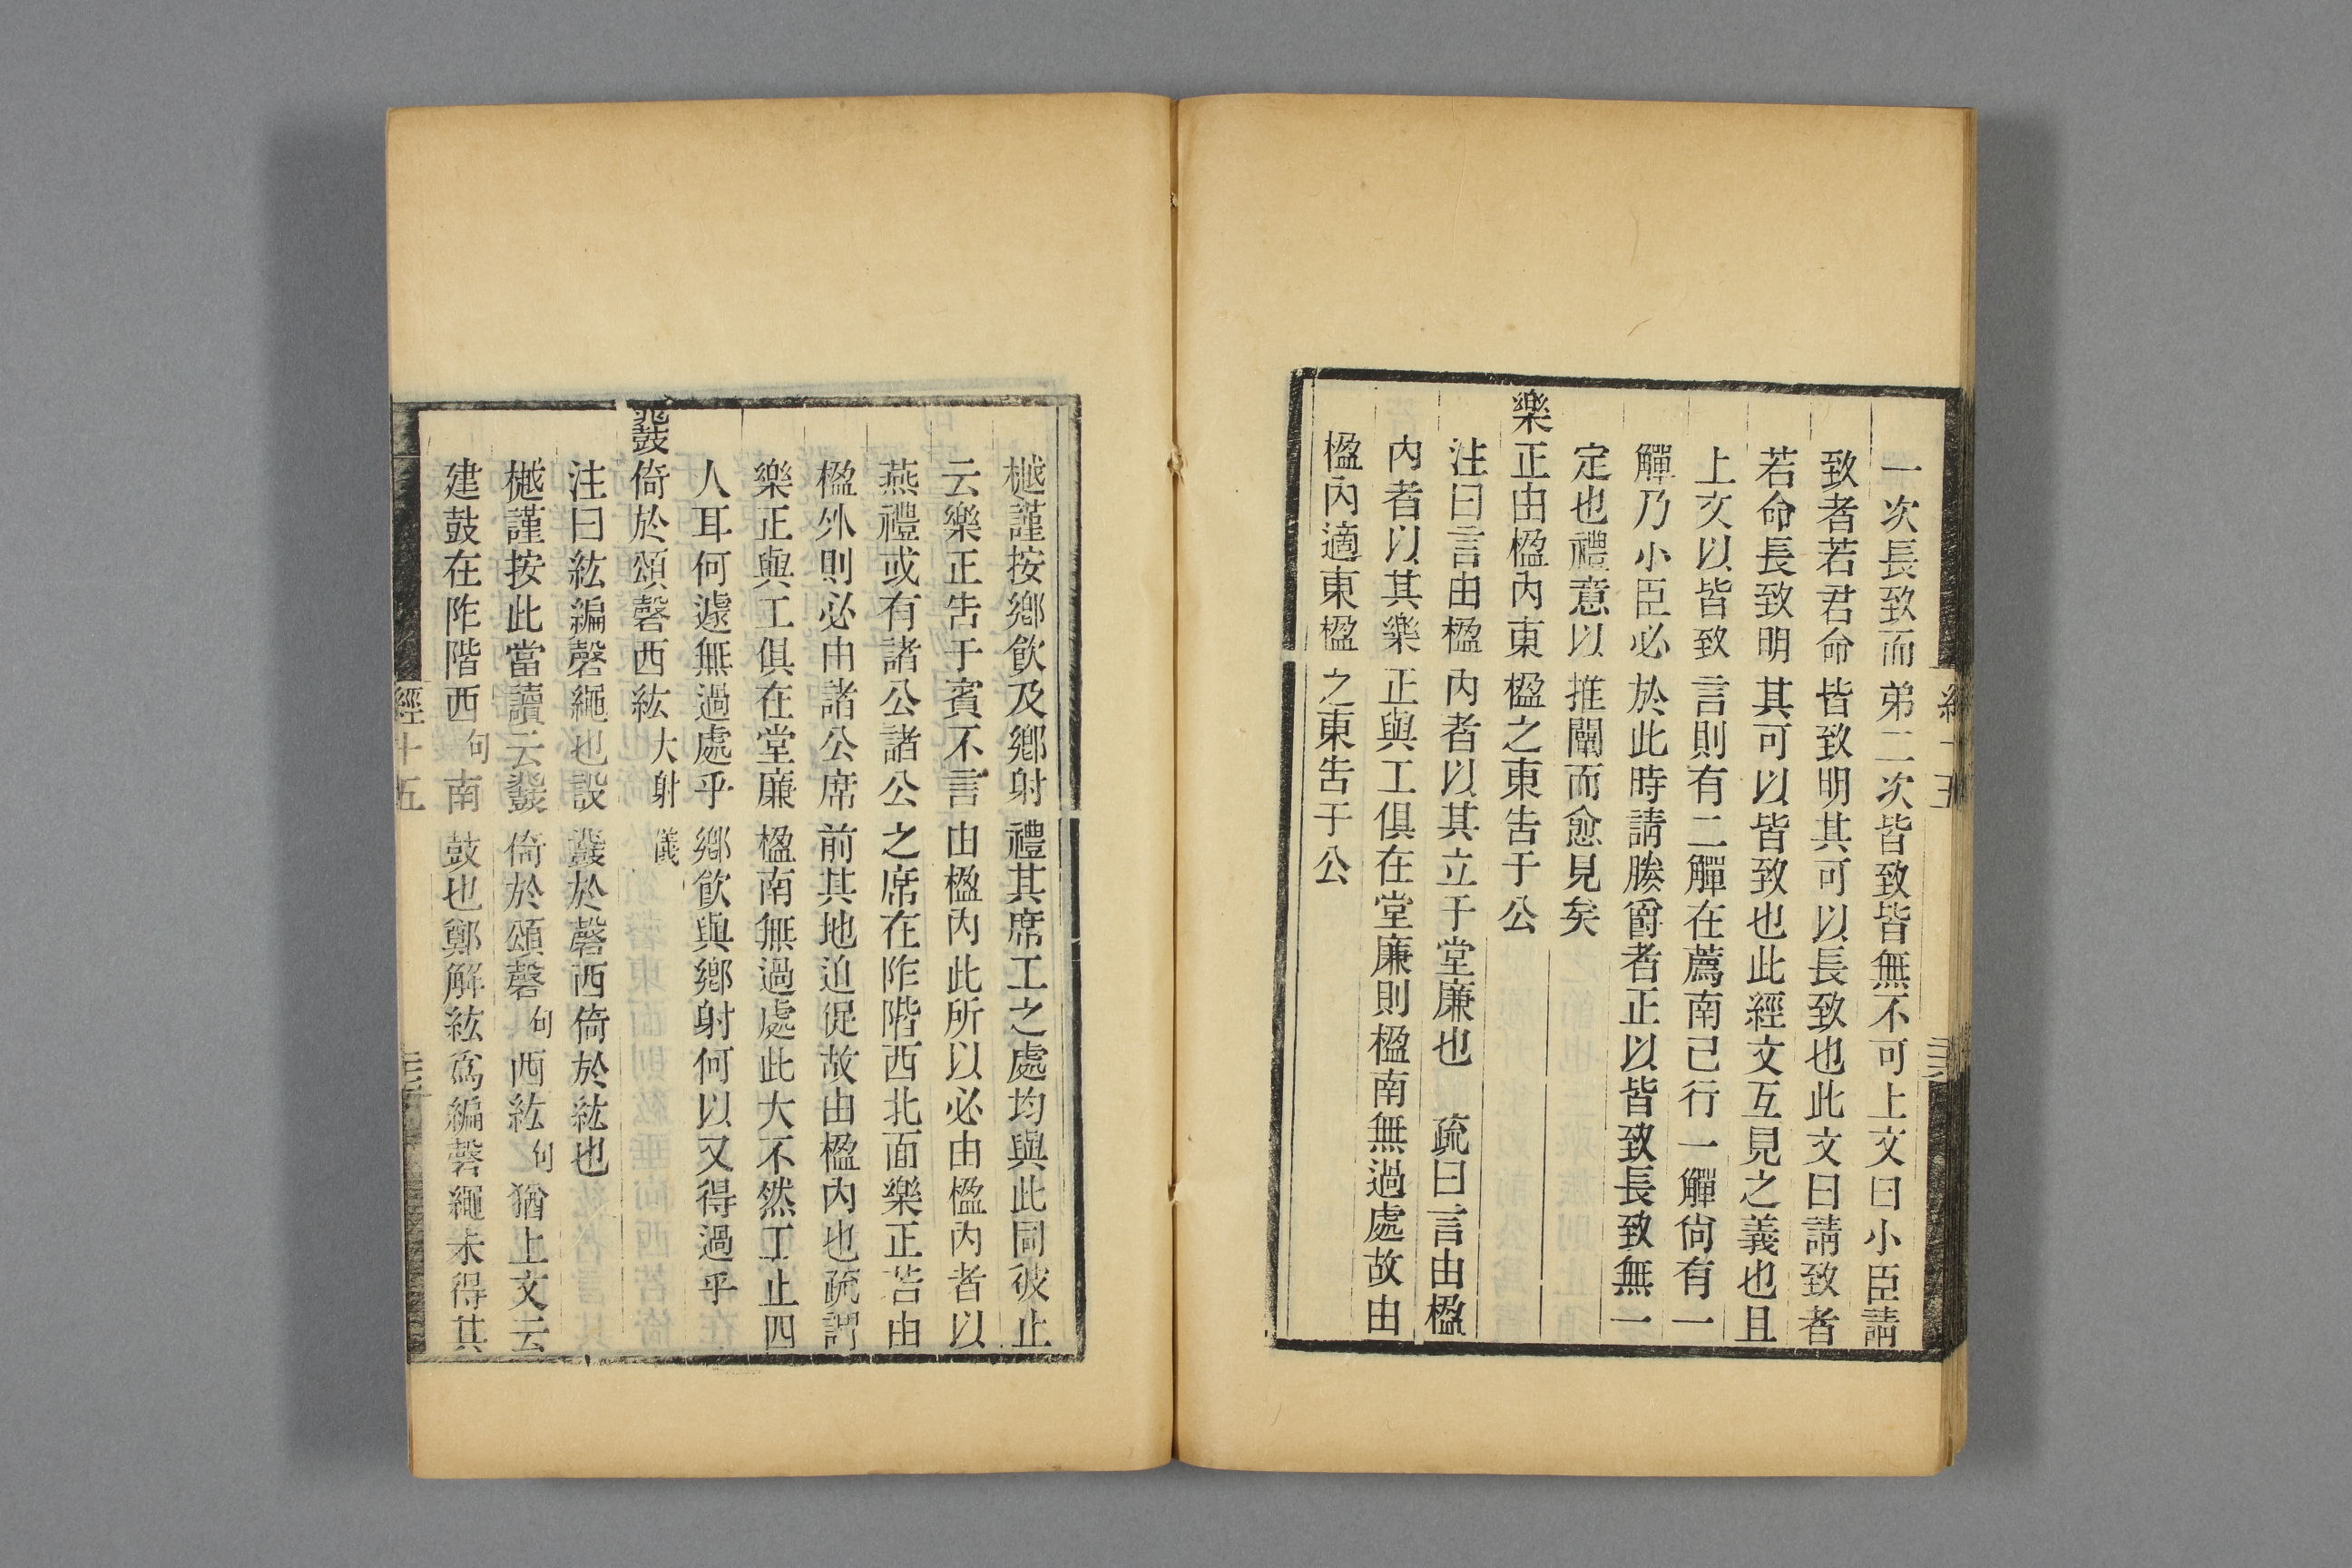 一次長致而弟二次皆致皆無不可上文曰小臣請
致者若君命皆致明其可以長致也此文曰請致者
若命長致明其可以皆致也此經文互見之義也且
上文以皆致言則有二觶在薦南已行一觶尙有一
觶乃小臣必於此時請媵爵者正以皆致長致無一
定也禮意以推闡而愈見矣
樂正由楹內東楹之東告于公
注曰言由楹內者以其立于堂廉也 疏曰言由楹
內者以其樂正與工俱在堂廉則楹南無過處故由
楹內適東楹之東告于公
樾謹按鄉飲及鄉射禮其席工之處均與此同彼止
云樂正告于賓不言由楹內此所以必由楹內者以
燕禮或有諸公諸公之席在阼階西北面樂正若由
楹外則必由諸公席前其地迫促故由楹內也疏謂
樂正與工俱在堂廉楹南無過處此大不然工止四
人耳何遽無過處乎鄉飲與鄉射何以又得過乎
鼗倚於頌磬西紘 大射儀
注曰紘編磬繩也設鼗於磬西倚於紘也
樾謹按此當讀云鼗倚於頌磬句西紘句猶上文云
建鼓在阼階西句南鼓也鄭解紘爲編磬繩未得其
經十五